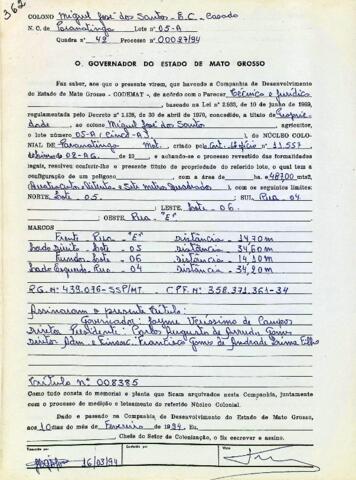 362
COLONO Miguel José dos Santos - B.C. - Casado
N. C. de Paranatinga Lote nº 05-A
Quadra nº 42 Processo nº 00027/94
O GOVERNADOR DO ESTADO DE MATO GROSSO
Faz saber, aos que o presente virem, que havendo a Companhia de Desenvolvimento
do Estado de Mato Grosso - CODEMAT -, de acôrdo com o Parecer Técnico e Jurídico
, baseado na Lei nº 2.903, de 10 de junho de 1969,
regulamentado pelo Decreto nº 1.138, de 30 de abril de 1970, concedido, a título de Proprie
dade ao colono Miguel José dos Santos, agricultor,
o lote número 05-A (Cinco A), do NÚCLEO COLO-
NIAL DE Paranatinga Mat. criado pelo
de 19 , e achando-se o processo revestido das formalidades
legais, resolveu conferir-lhe o presente título de propriedade do referido lote, o qual tem a
configuração de um polígono , com a área de 487,00 mts2,
, com os seguintes limites:
NORTE, Lote 05. SUL Rua 04
LESTE, Lote - 06.
OESTE, Rua "E"
MARCOS
Frente - Rua "E" Distância - 14,70 m
Lado Direito - Lote - 05 Distância - 34,60 m
Fundos - Lote - 06 Distância - 14,10 m
Lado Esquerdo - Rua - 04 Distância - 34,20 m
R.G. Nº 439.076-SSP/MT. C.P.F. Nº 358.371.361-34
Assinaram o presente título:
Governador: Jayme Veríssimo de Campos
Diretor Presidente: Carlos Augusto de Arruda Gomes
Diretor Adm. e Financ: Francisco Gomes de Andrade Lima Filho
Título Nº 008385
Como tudo consta do memorial e planta que ficam arquivados nesta Companhia, juntamente
com o processo de medição e loteamento do referido Núcleo Colonial.
Dado e passado na Companhia de Desenvolvimento do Estado de Mato Grosso,
aos 10 dias do mês de Fevereiro de 1994. Eu,
, Chefe do Setor de Colonização, o fiz escrever e assino.
Transcrito por Conferido por Visto
16/03/94